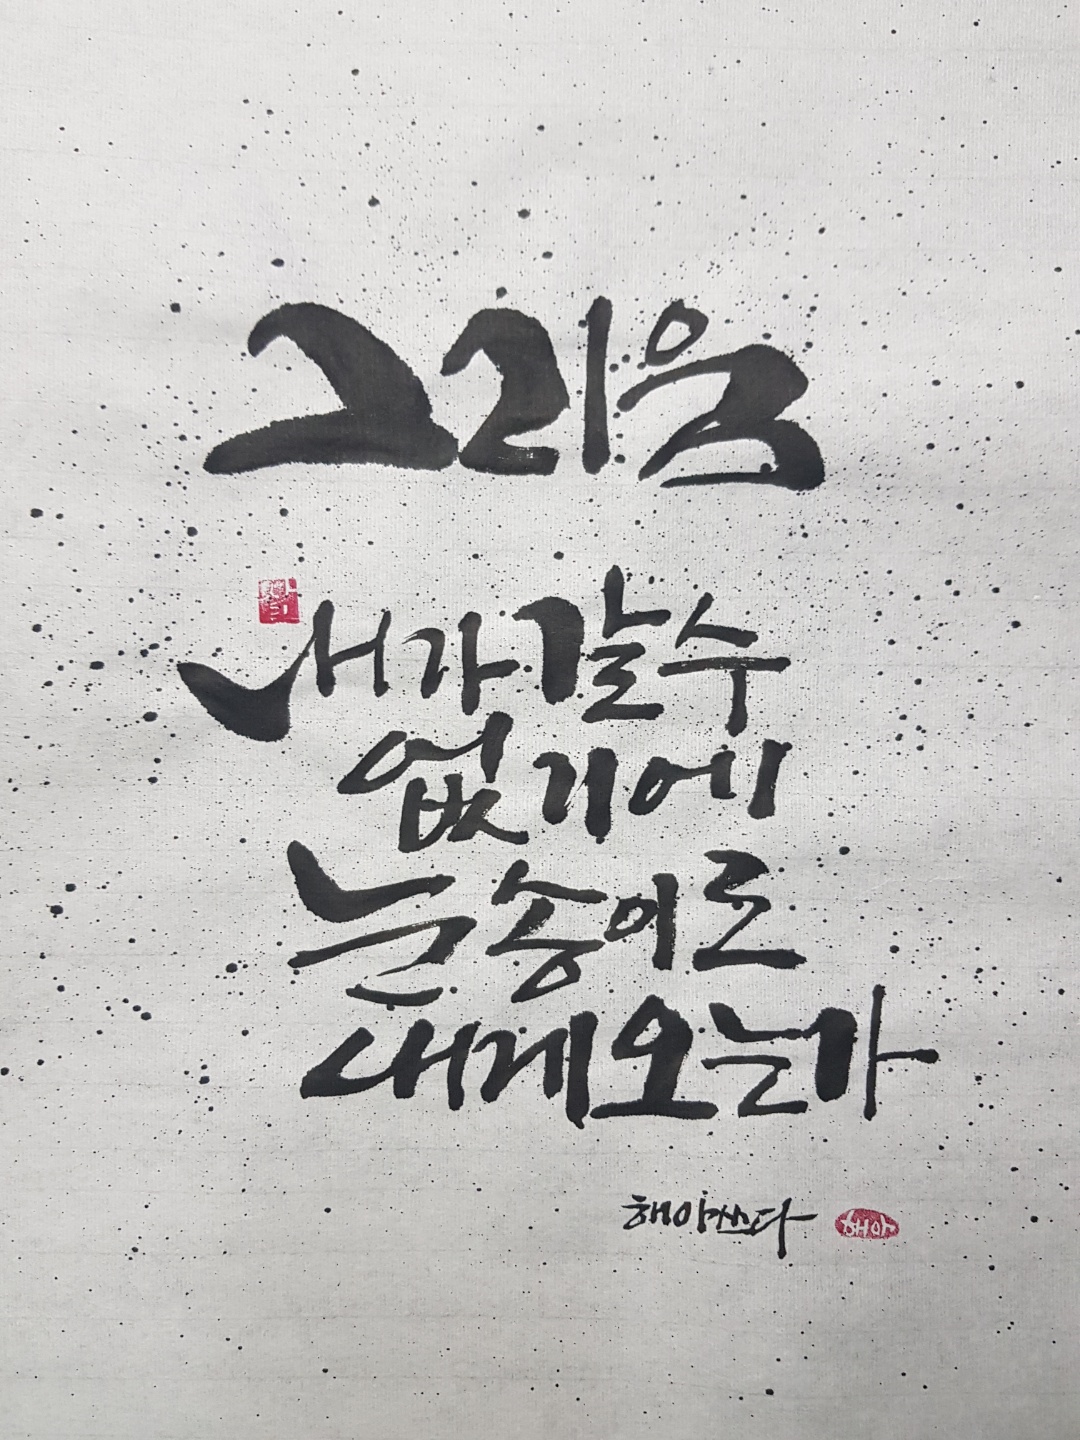 그리움
내가 갈 수
없기에
눈송이로
내게 오는가
해야 쓰다
해야